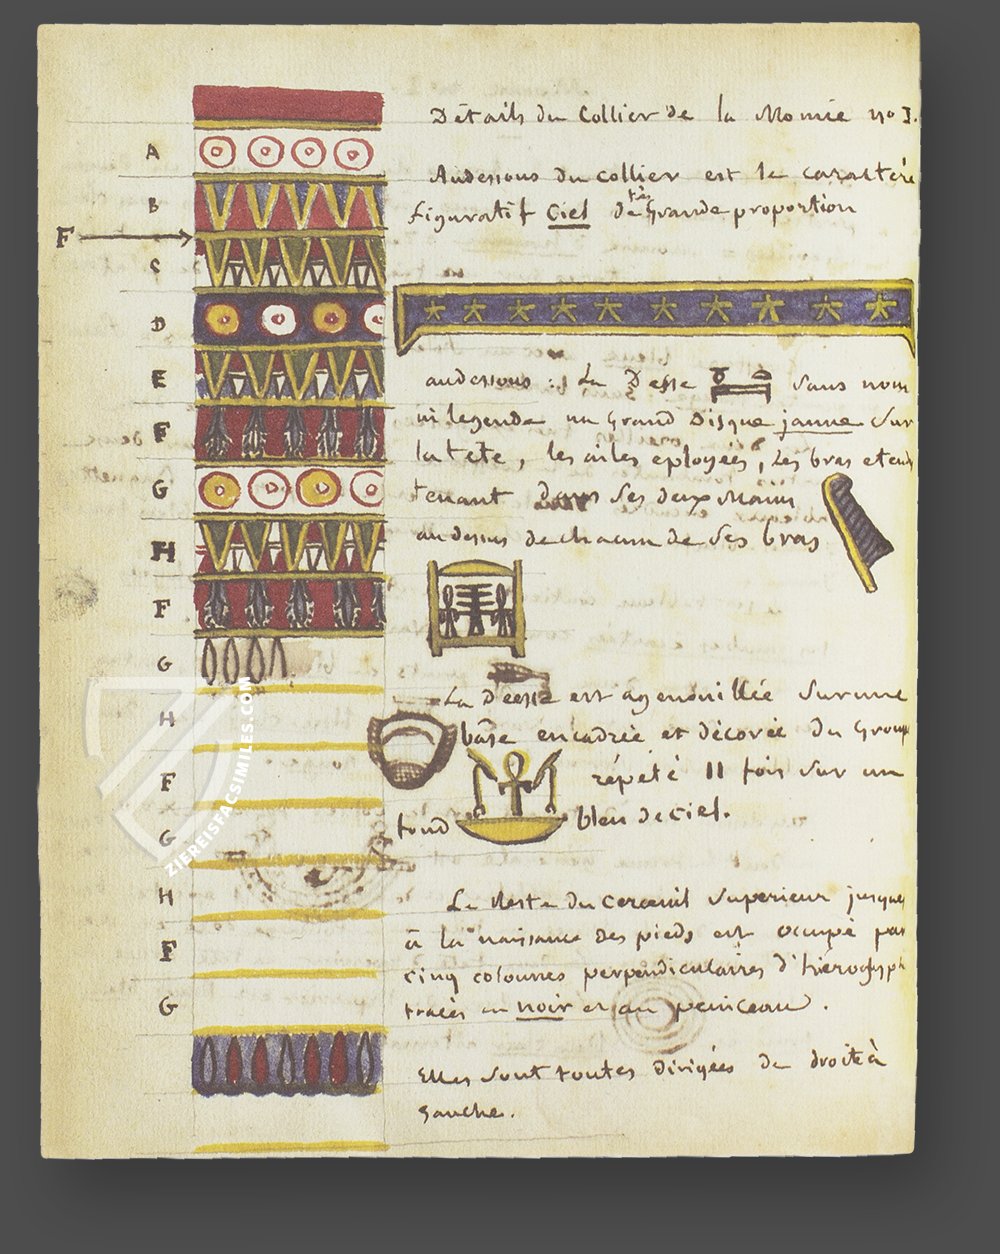 Détails du Collier de la Momie nº I.
A
Audessous du collier est le caractère
B
figuratif Ciel de très Grande proportion
F
C
D
E
audessous : La Déesse sans nom
ni legende un Grand Disque jaune sur
F
la tête, les ailes eployées, les bras etend
G
tenant Dans ses deux Mains
H
audessus de chacun de ses bras
F
G
La Déesse est agenouillée sur une
H
base encadrée et décorée du Group
F
répété 11 fois sur un
G
fond bleu de ciel.
H
Le Reste du cercueil supérieur jusque
F
à la naissance des pieds est occupé par
cinq colonnes perpendiculaires d'hieroglyph
G
tracés en noir et au peinceau.
Elles sont toutes Dirigées de droite à
Gauche.
ZIEREISFACSIMILES.COM